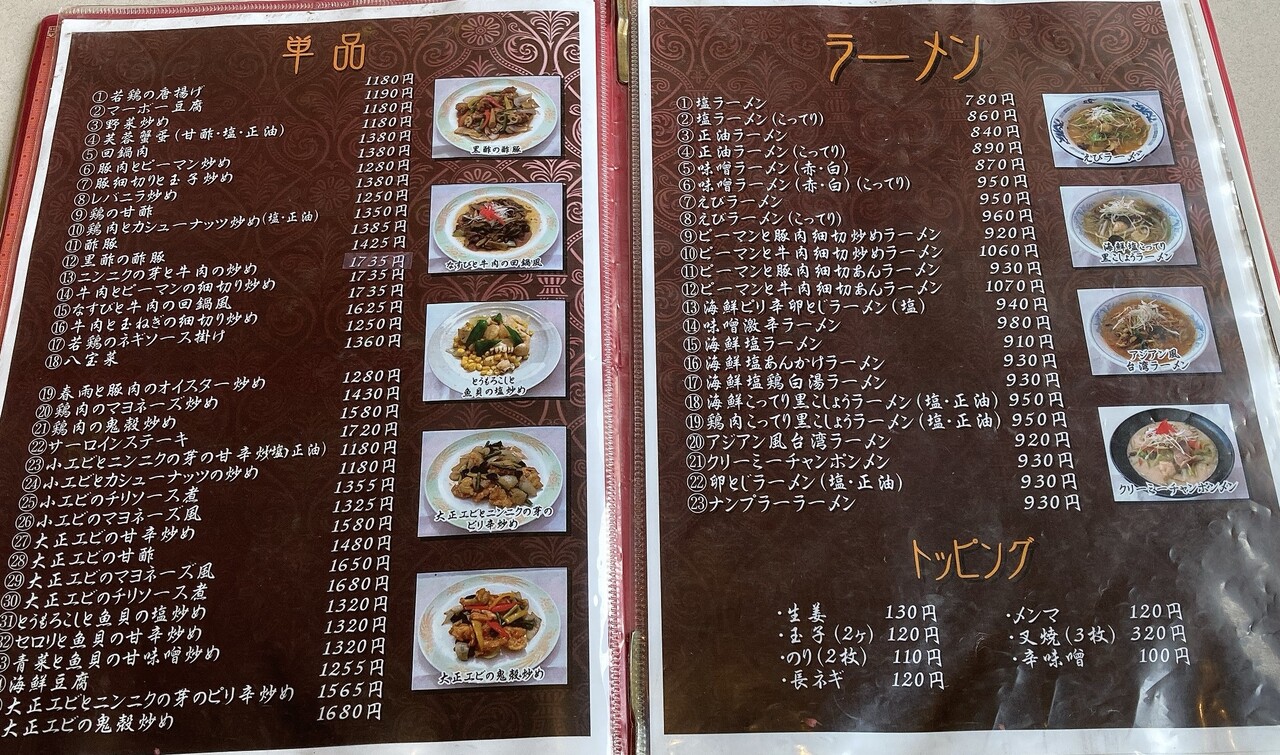 単品
①若鶏の唐揚げ 1180円
②マーボー豆腐 1190円
③野菜炒め 1180円
④芙蓉蟹蛋(甘酢・塩・正油) 1180円
⑤回鍋肉 1380円
⑥豚肉とピーマン炒め 1380円
⑦豚細切りと玉子炒め 1280円
⑧レバニラ炒め 1380円
⑨鶏の甘酢 1250円
⑩鶏肉とカシューナッツ炒め(塩・正油) 1350円
⑪酢豚 1385円
⑫黒酢の酢豚 1425円
⑬ニンニクの芽と牛肉の炒め 1735円
⑭牛肉とピーマンの細切り炒め 1735円
⑮なすびと牛肉の回鍋風 1735円
⑯牛肉と玉ねぎの細切り炒め 1625円
⑰若鶏のネギソース掛け 1250円
⑱八宝菜 1360円
⑲春雨と豚肉のオイスター炒め 1280円
⑳鶏肉のマヨネーズ炒め 1430円
㉑鶏肉の鬼殻炒め 1580円
㉒サーロインステーキ 1720円
㉓小エビとニンニクの芽の甘辛炒め(塩・正油) 1180円
㉔小エビとカシューナッツの炒め 1180円
㉕小エビのチリソース煮 1355円
㉖小エビのマヨネーズ風 1325円
㉗大正エビの甘辛炒め 1580円
㉘大正エビの甘酢 1480円
㉙大正エビのマヨネーズ風 1650円
㉚大正エビのチリソース煮 1680円
㉛とうもろこしと魚貝の塩炒め 1320円
㉜セロリと魚貝の甘辛炒め 1320円
青菜と魚貝の甘味噌炒め 1320円
海鮮豆腐 1255円
大正エビとニンニクの芽のピリ辛炒め 1565円
大正エビの鬼殻炒め 1680円
黒酢の酢豚
なすびと牛肉の回鍋風
とうもろこしと
魚貝の塩炒め
大正エビとニンニクの芽の
ピリ辛炒め
大正エビの鬼殻炒め
ラーメン
①塩ラーメン 780円
②塩ラーメン(こってり) 860円
③正油ラーメン 840円
④正油ラーメン(こってり) 890円
⑤味噌ラーメン(赤・白) 870円
⑥味噌ラーメン(赤・白)(こってり) 950円
⑦えびラーメン 950円
⑧えびラーメン(こってり) 960円
⑨ピーマンと豚肉細切炒めラーメン 920円
⑩ピーマンと牛肉細切炒めラーメン 1060円
⑪ピーマンと豚肉細切あんラーメン 930円
⑫ピーマンと牛肉細切あんラーメン 1070円
⑬海鮮ピリ辛卵とじラーメン(塩) 940円
⑭味噌激辛ラーメン 980円
⑮海鮮塩ラーメン 910円
⑯海鮮塩あんかけラーメン 930円
⑰海鮮塩鶏白湯ラーメン 930円
⑱海鮮こってり黒こしょうラーメン(塩・正油) 950円
⑲鶏肉こってり黒こしょうラーメン(塩・正油) 950円
⑳アジアン風台湾ラーメン 920円
㉑クリーミーチャンポンメン 930円
㉒卵とじラーメン(塩・正油) 930円
㉓ナンプラーラーメン 930円
えびラーメン
海鮮塩こってり
黒こしょうラーメン
アジアン風
台湾ラーメン
クリーミーチャンポンメン
トッピング
・生姜 130円
・玉子(2ヶ) 120円
・のり(2枚) 110円
・長ネギ 120円
・メンマ 120円
・叉焼(3枚) 320円
・辛味噌 100円